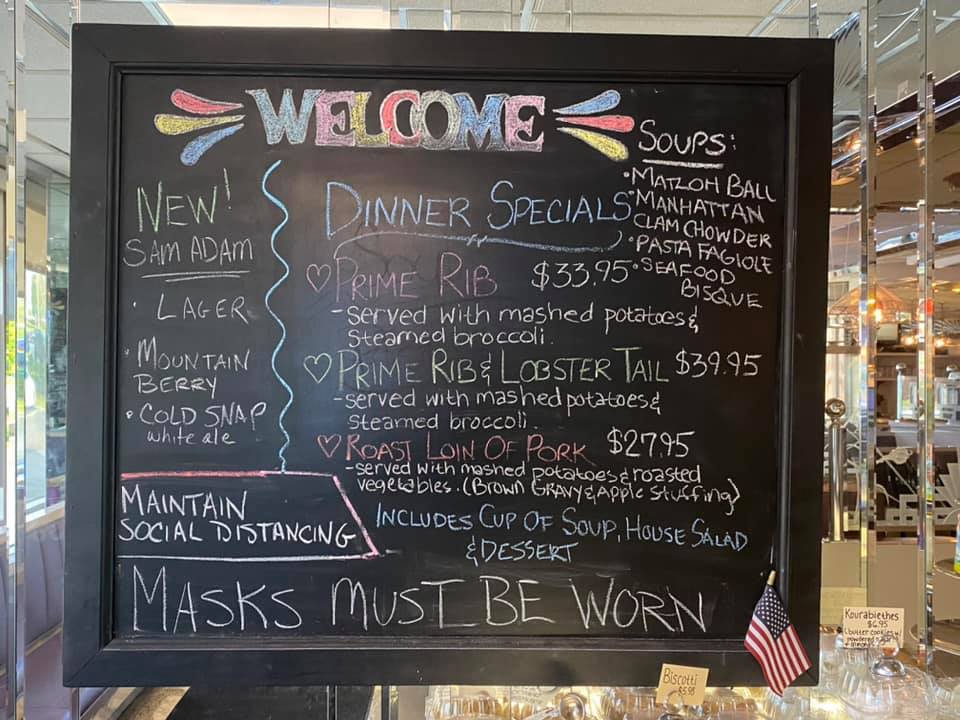 WELCOME
NEW!
SAM ADAM
· LAGER
· MOUNTAIN
BERRY
· COLD SNAP
white ale
DINNER SPECIALS
♡ PRIME RIB $33.95
-served with mashed potatoes &
steamed broccoli.
♡ PRIME RIB & LOBSTER TAIL $39.95
-served with mashed potatoes &
steamed broccoli.
♡ ROAST LOIN OF PORK $27.95
-served with mashed potatoes & roasted
vegetables. (Brown Gravy & Apple Stuffing)
INCLUDES CUP OF SOUP, HOUSE SALAD
& DESSERT
SOUPS:
· MATZOH BALL
· MANHATTAN
CLAM CHOWDER
· PASTA FAGIOLE
· SEAFOOD
BISQUE
MAINTAIN
SOCIAL DISTANCING
MASKS MUST BE WORN
Kourabiethes
$6.95
(butter cookies w/
powdered
Biscotti
$5.95